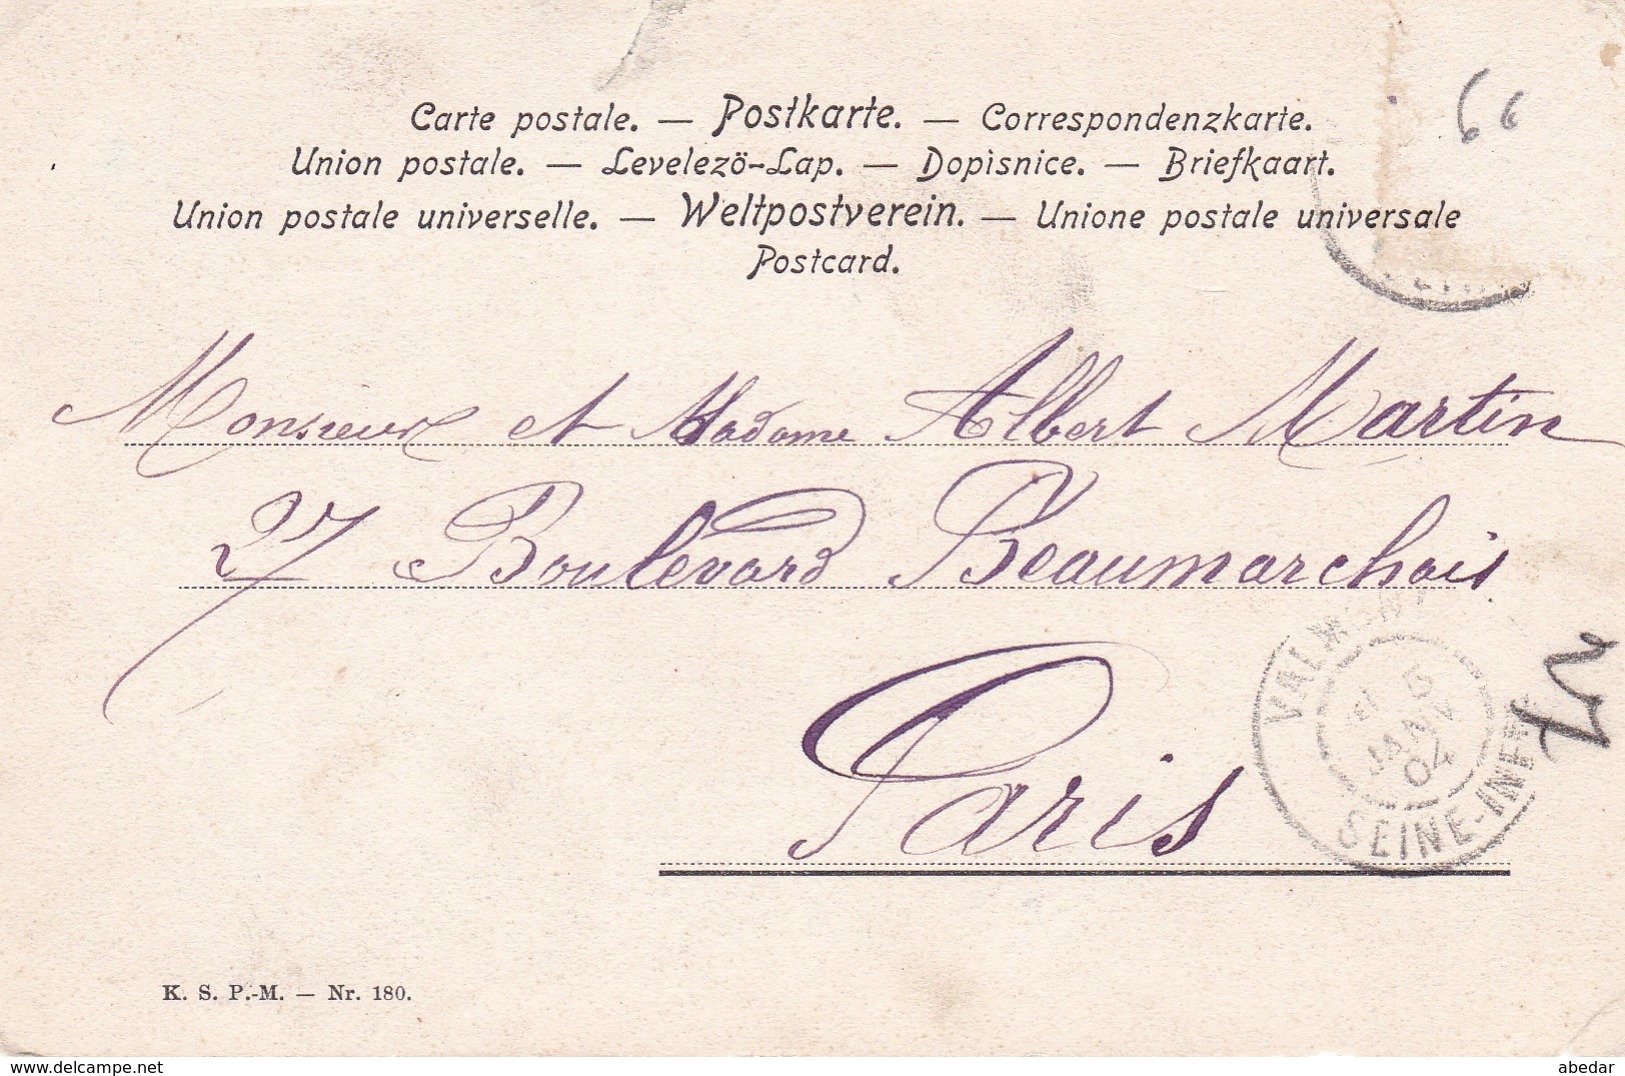 66
Carte postale. — Postkarte. — Correspondenzkarte.
Union postale. — Levelezö-Lap. — Dopisnice. — Briefkaart.
Union postale universelle. — Weltpostverein. — Unione postale universale
Postcard.
Monsieur et Madame Albert Martin
27 Boulevard Beaumarchais
Paris
5
JANV
04
SEINE-INFRE
K. S. P.-M. — Nr. 180.
delcampe.net
abedar